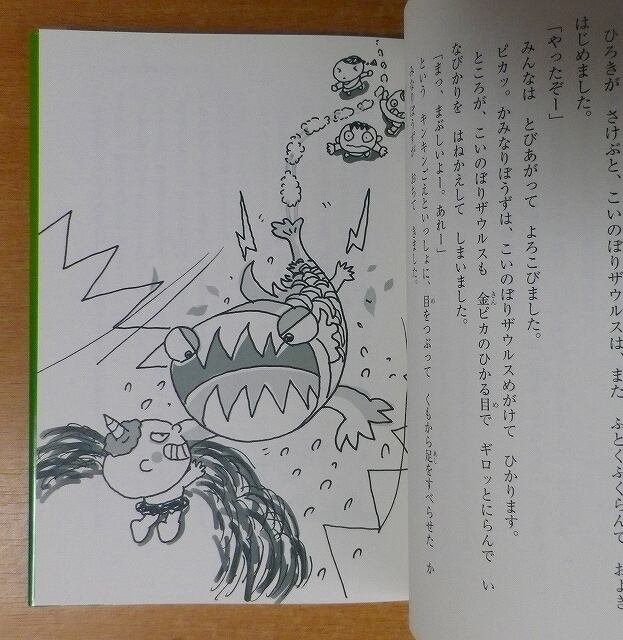 ひろきが　さけぶと、こいのぼりザウルスは、また　ふとくふくらんで　およぎ
はじめました。
「やったぞー」
みんなは　とびあがって　よろこびました。
ピカッ。かみなりぼうずは、こいのぼりザウルスめがけて　ひかります。
ところが、こいのぼりザウルスも　金ピカのひかる目で　ギロッとにらんで　い
なびかりを　はねかえして　しまいました。
「まっ、まぶしいよー。あれー」
という　キンキンごえといっしょに、目をつぶって　くもから足をすべらせた　か
みなりぼうずが　おちて　きました。